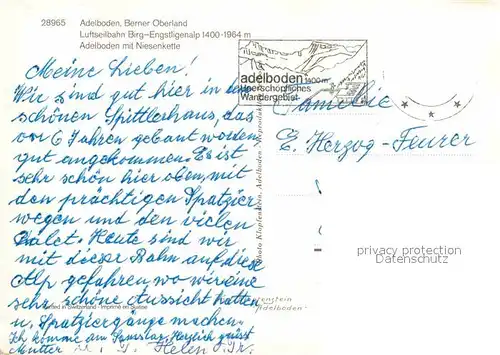 28965 Adelboden, Berner Oberland
Luftseilbahn Birg-Engstligenalp 1400-1964 m
Adelboden mit Niesenkette
adelboden 1400 m
unerschöpfliches
Wandergebiet
Meine Lieben!
Wir sind gut hier in dem
schönen Spittlerhaus, das
vor 6 Jahren gebaut worden
gut angekommen. Es ist
sehr schön hier oben, mit
den prächtigen Spatzier
wegen und den vielen
Chalet. Heute sind wir
mit dieser Bahn auf diese
Alp gefahren, wo wir eine
sehr schöne Aussicht hatten
u. Spatziergänge machen.
Ich komme am Samstag. Herzlich grüsst
Mutter
Helen
Familie
E. Herzog-Feurer
Photo Klopfenstein, Adelboden
Printed in Switzerland - Imprimé en Suisse
enstein
Adelboden"
privacy protection
Datenschutz